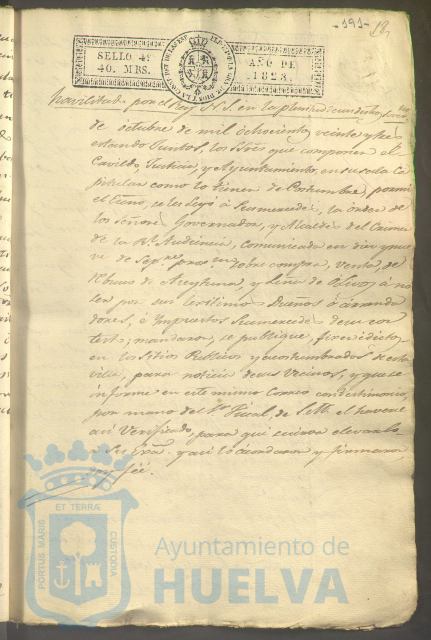 -191-
SELLO 4º
40. MRS.
AÑO DE
1823.
havilitado por el Rey N. S. en la
de octubre de mil ochocientos veinte y tres
estando Juntos, los Sres que componen el
Cavildo, Justicia, y Ayuntamiento, en su sala Ca
pitular como lo tienen de Costumbre, por mi
el Essno, se les leyó a Sus mercedes, la orden de
los señores Governador, y Alcaldes del Crimen
de la Rl. Audiencia, comunicada en diez y nue
ve de Sepre. sobre compra, venta, de
de Aceytuna, y de Olivos á no
ser por sus lexitimos Dueños ó arrenda
dores, é Impuestos Sus mercedes de su con
texto; mandaron, se publique, fixen edictos
en los sitios Publicos y acostumbrados de esta
villa, para noticia de sus Vecinos, y que se
informe en este mismo Correo con testimonio,
por mano del Sr. Fiscal, de el haverse
asi Verificado, para que
y asi lo acordaron y firmaron
doy fée.
ET TERRÆ
PORTUS MARIS
CUSTODIA
Ayuntamiento de
HUELVA